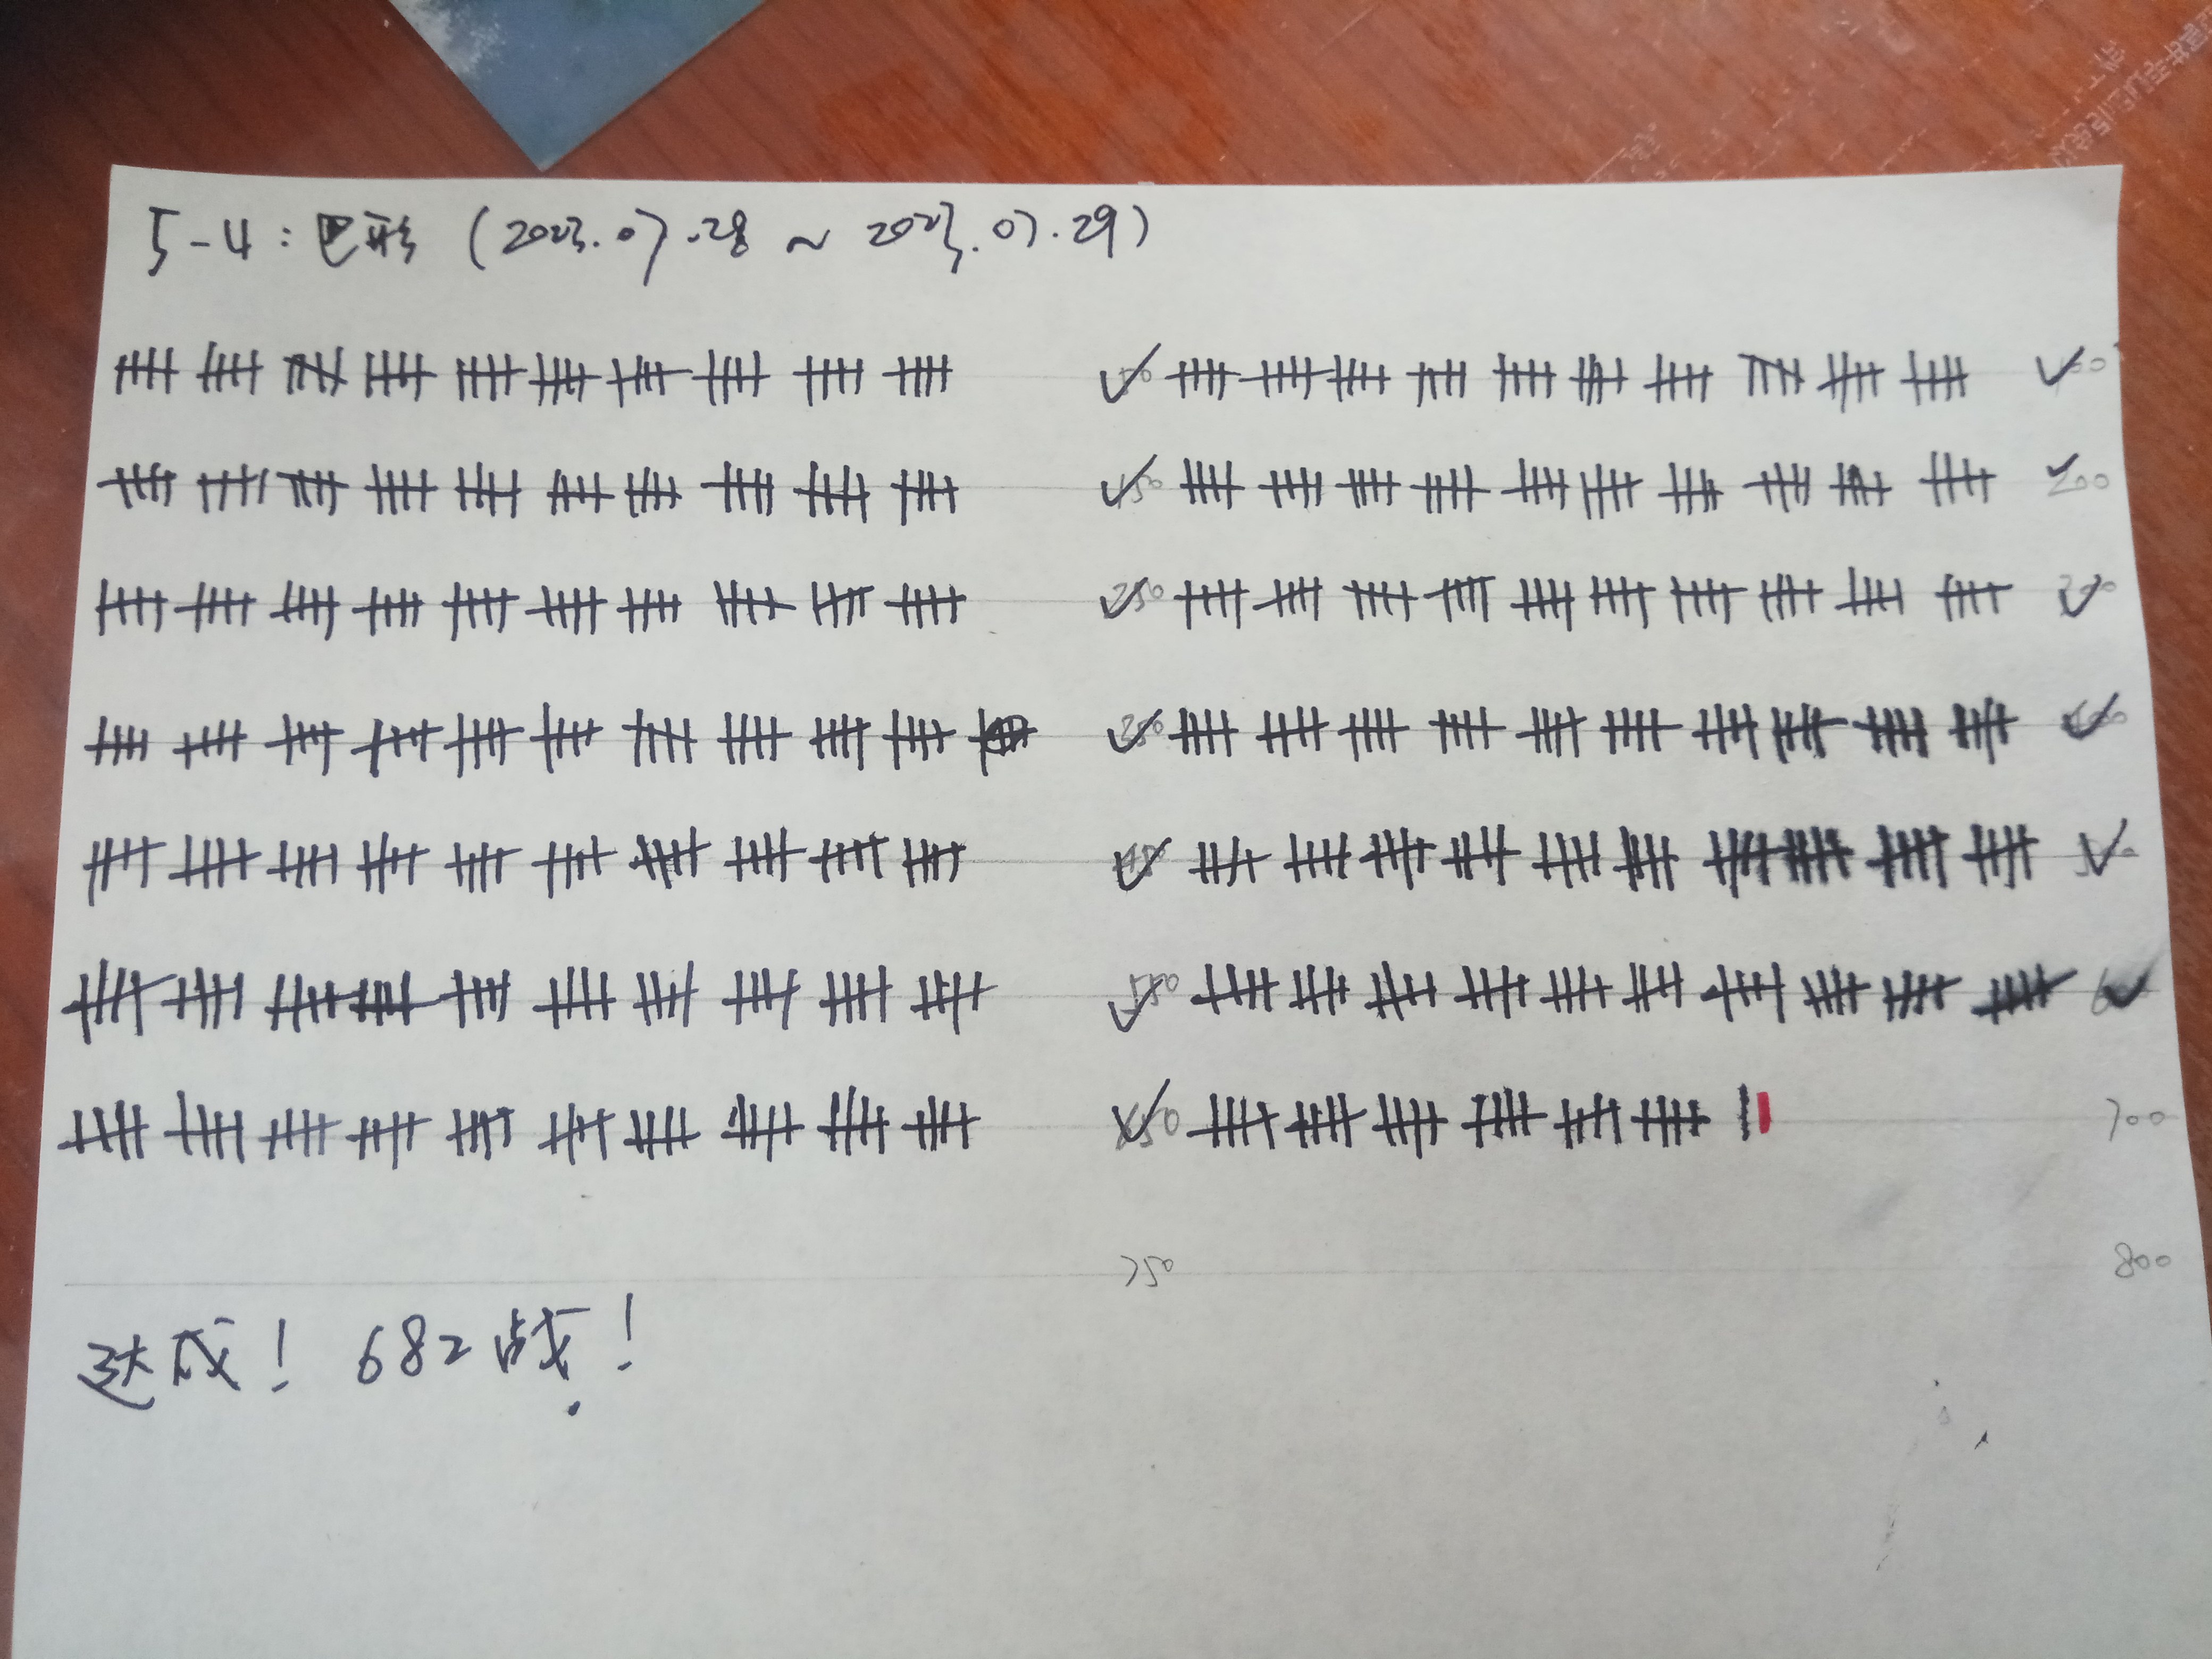 5-4：巴形 (2023.07.28 ~ 2023.07.29)
50
150 200
250 300
350 400
550
650 700
750 800
达成！ 682战！